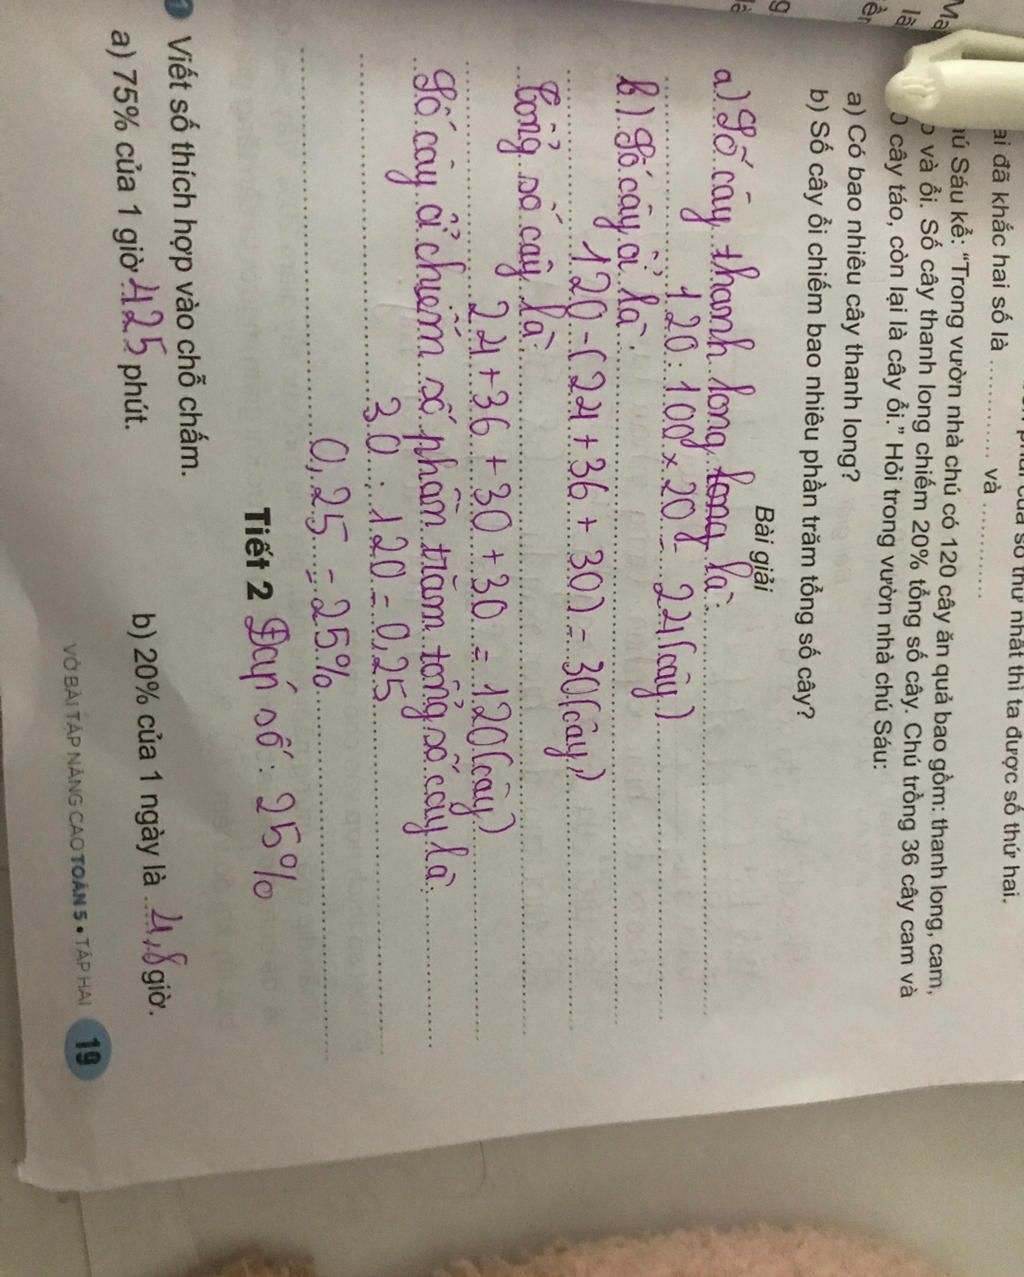 ai đã khắc hai số là ............ và ............
của số thứ nhất thì ta được số thứ hai.
Sáu kể: “Trong vườn nhà chú có 120 cây ăn quả bao gồm: thanh long, cam,
và ổi. Số cây thanh long chiếm 20% tổng số cây. Chú trồng 36 cây cam và
cây táo, còn lại là cây ổi.” Hỏi trong vườn nhà chú Sáu:
a) Có bao nhiêu cây thanh long?
b) Số cây ổi chiếm bao nhiêu phần trăm tổng số cây?
Bài giải
a) Số cây thanh long long là:
120 : 100 × 20 = 24 (cây)
b) Số cây ổi là:
120 - (24 + 36 + 30) = 30 (cây)
Tổng số cây là:
24 + 36 + 30 + 30 = 120 (cây)
Số cây ổi chiếm số phần trăm tổng số cây là:
30 : 120 = 0,25
0,25 = 25%
Tiết 2 Đáp số: 25%
1 Viết số thích hợp vào chỗ chấm.
a) 75% của 1 giờ 425 phút. b) 20% của 1 ngày là 4,8 giờ.
VỞ BÀI TẬP NÂNG CAO TOÁN 5 • TẬP HAI 19